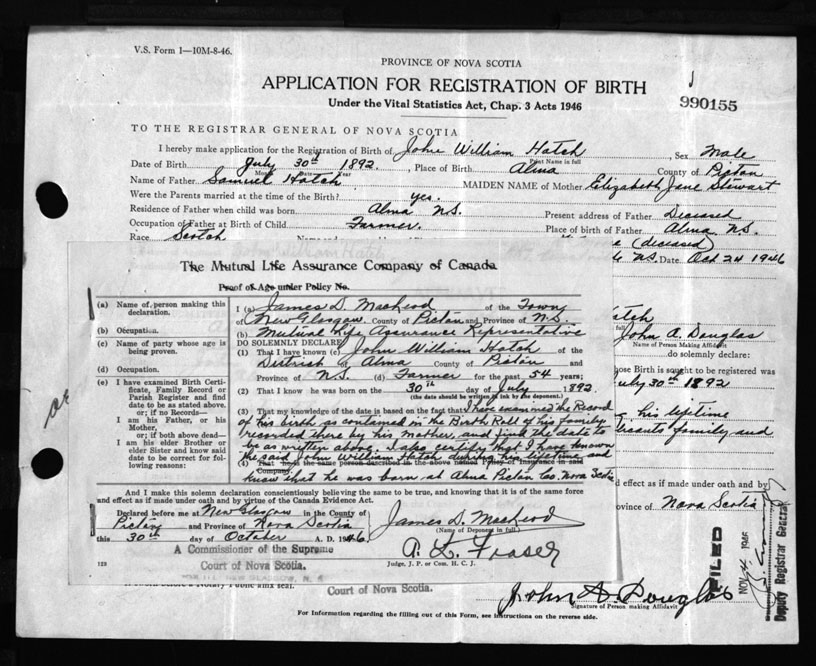 V.S. Form 1—10M-8-46.
PROVINCE OF NOVA SCOTIA
APPLICATION FOR REGISTRATION OF BIRTH
Under the Vital Statistics Act, Chap. 3 Acts 1946
990155
TO THE REGISTRAR GENERAL OF NOVA SCOTIA
I hereby make application for the Registration of Birth of John William Hatch, Sex Male
Print Name in full
Date of Birth July 30th 1892, Place of Birth Alma County of Pictou
Month Date Year
Name of Father Samuel Hatch MAIDEN NAME of Mother Elizabeth Jane Stewart
Were the Parents married at the time of the Birth? yes.
Residence of Father when child was born Alma N.S. Present address of Father Deceased
Occupation of Father at Birth of Child Farmer. Place of birth of Father Alma N.S.
Race Scotch (deceased)
N.S. Date Oct 24 1946
The Mutual Life Assurance Company of Canada
Proof of Age under Policy No.
(a) Name of person making this declaration.
(b) Occupation.
(c) Name of party whose age is being proven.
(d) Occupation.
(e) I have examined Birth Certificate, Family Record or Parish Register and find date to be as stated above.
or; if no Records—
I am his Father, or his Mother,
or; if both above dead—
I am his elder Brother or elder Sister and know said date to be correct for following reasons:
I (a) James D. MacLeod of the Town
of New Glasgow County of Pictou and Province of N.S.
(b) Mutual Life Assurance Representative
DO SOLEMNLY DECLARE
(1) That I have known (c) John William Hatch of the
District of Alma County of Pictou and
Province of N.S. (d) Farmer for the past 54 years;
(2) That I know he was born on the 30th day of July 1892
(the date should be written in ink by the deponent.)
(3) That my knowledge of the date is based on the fact that I have examined the Record
of his birth as contained in the Birth Roll of his family
recorded there by his mother, and find the date to
be as written above. I also certify that I have known
the said John William Hatch during his lifetime and
(4) That he is the same person described in the above named Policy of Insurance in said Company.
know that he was born at Alma Pictou Co. Nova Scotia
And I make this solemn declaration conscientiously believing the same to be true, and knowing that it is of the same force
and effect as if made under oath and by virtue of the Canada Evidence Act.
Declared before me at New Glasgow in the County of
Pictou and Province of Nova Scotia
this 30th day of October A. D. 1946.
James D. MacLeod
(Name of Deponent in full.)
A Commissioner of the Supreme
Court of Nova Scotia.
Judge, J. P. or Com. H. C. J.
123
Hatch
John A. Douglas
Name of Person Making Affidavit
do solemnly declare:
whose Birth is sought to be registered was
July 30th 1892
his lifetime
family and
effect as if made under oath and by
Province of Nova Scotia
Court of Nova Scotia.
John A. Douglas
Signature of Person making Affidavit
For Information regarding the filling out of this Form, see Instructions on the reverse side.
FILED
Deputy Registrar General